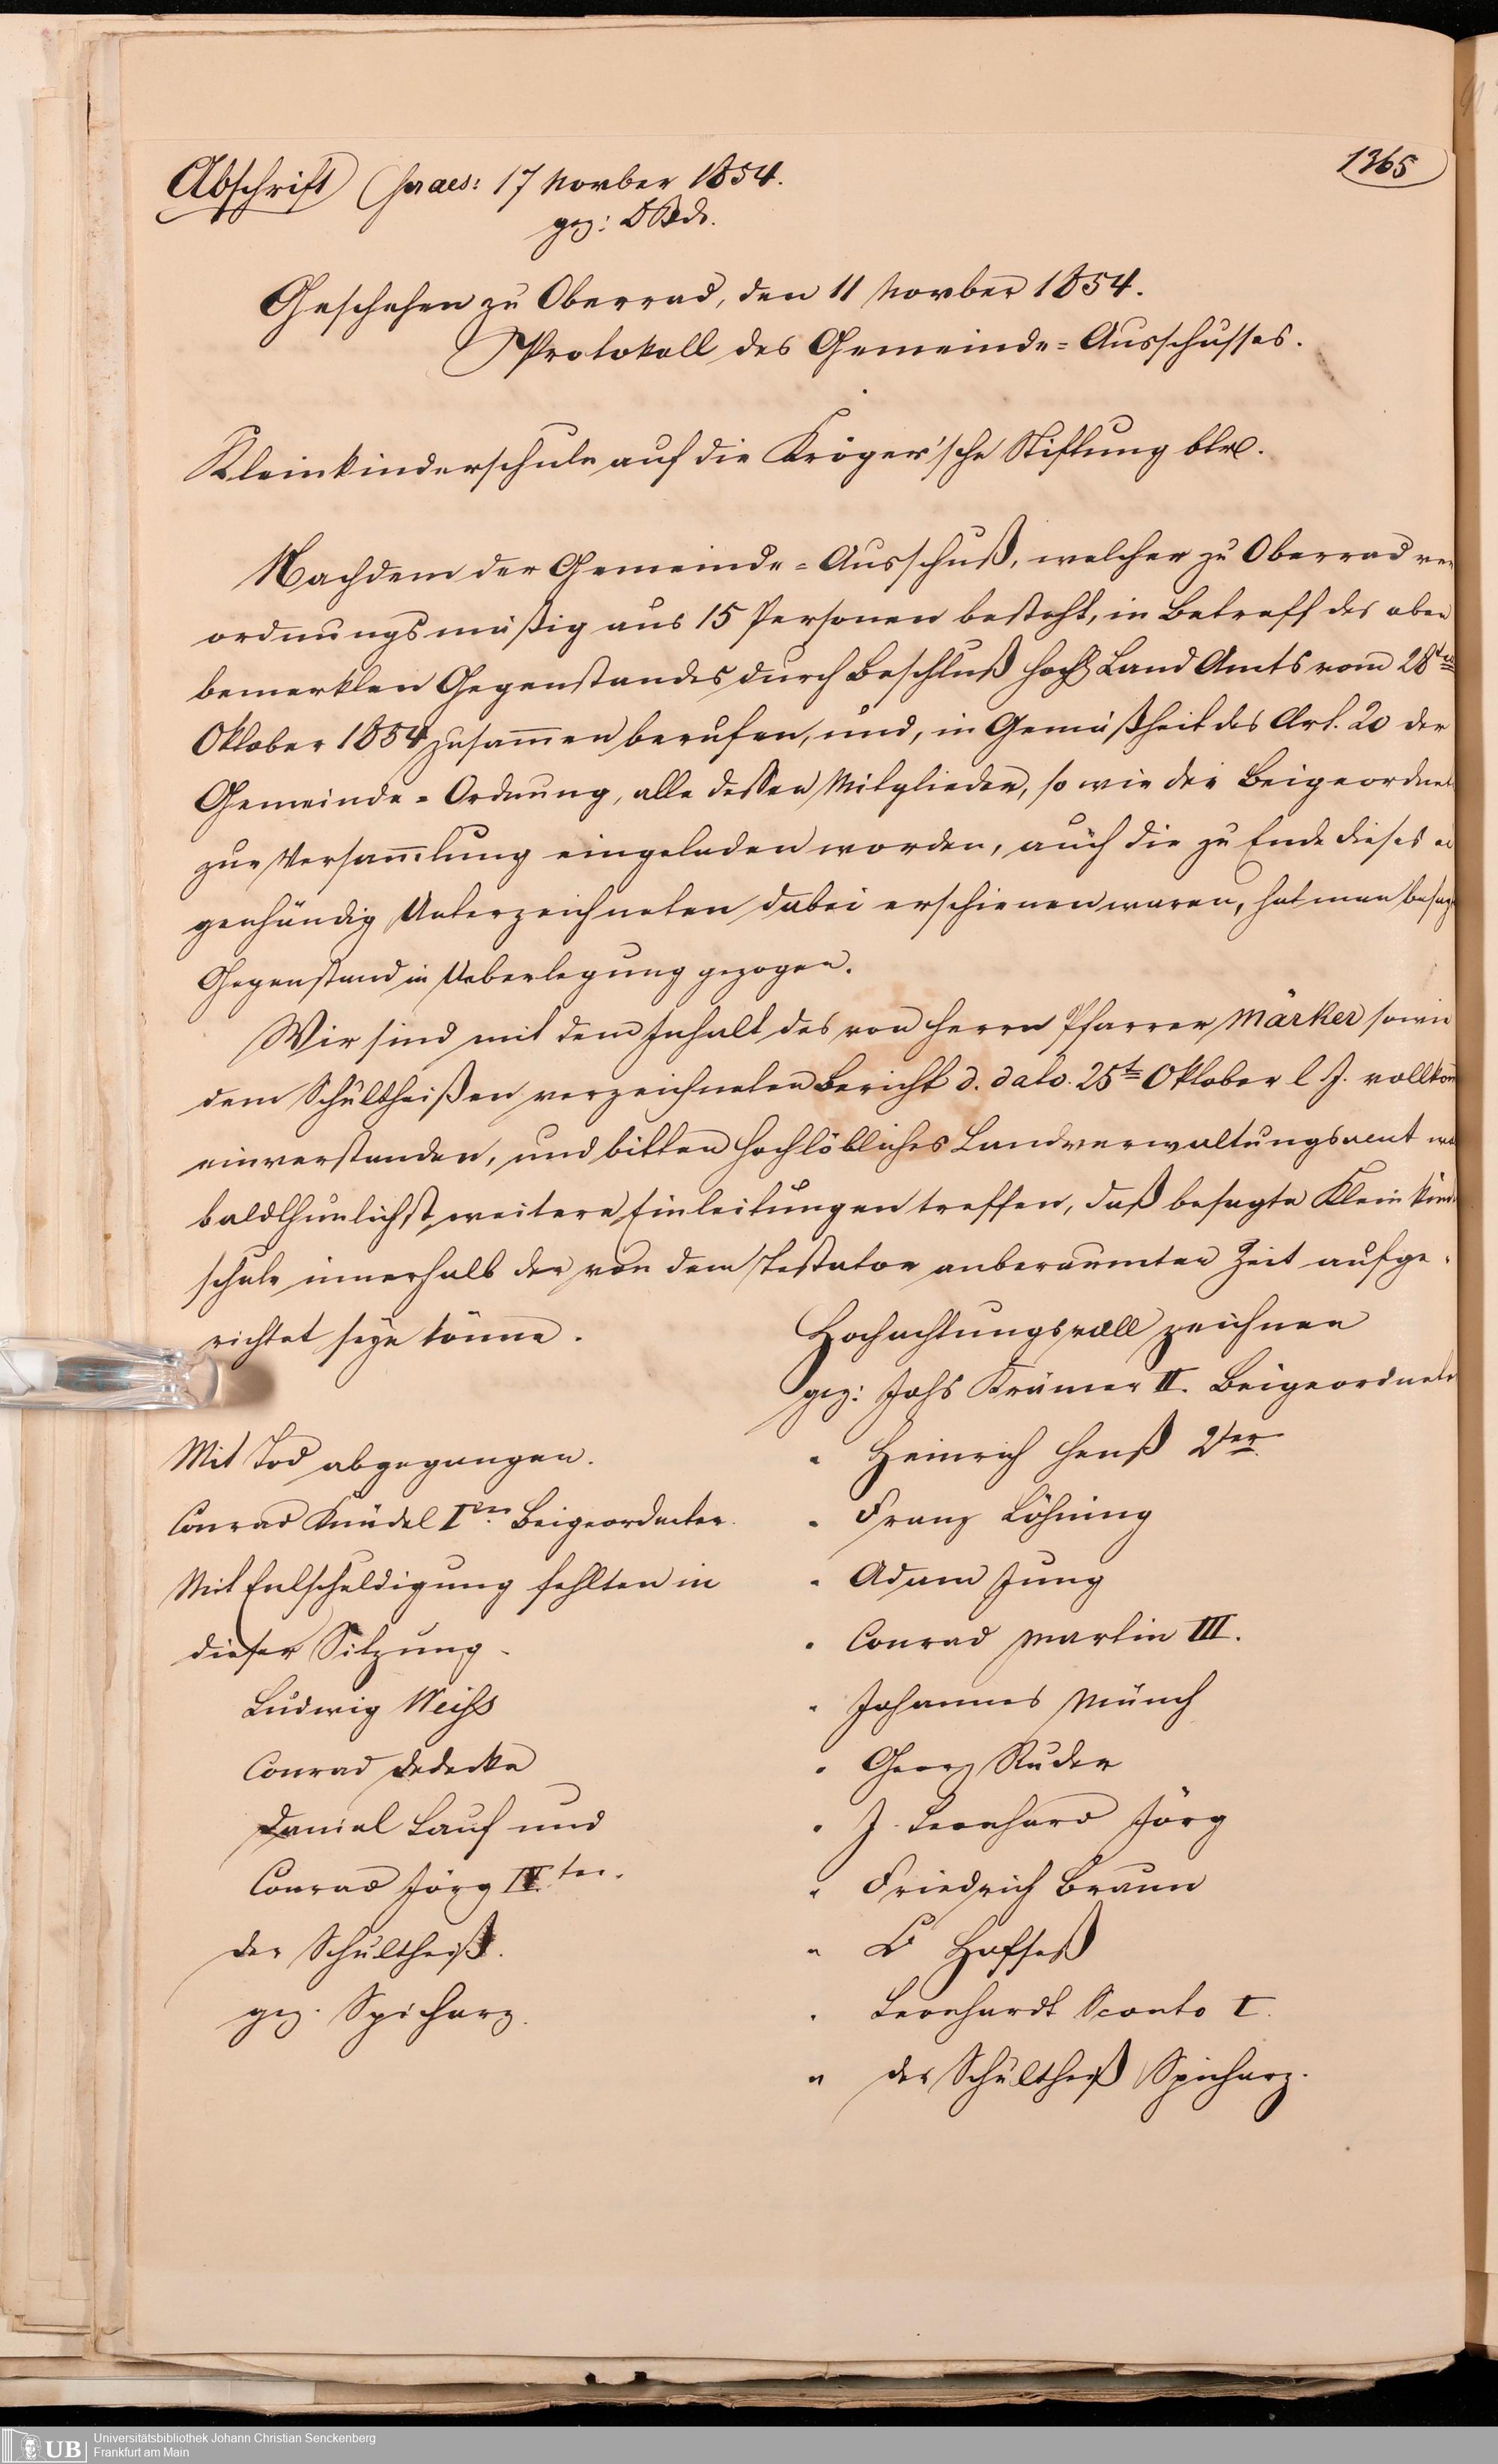 1365
Abschrift Praes: 17 Novber 1854.
gez:
Geschehen zu Oberrad, den 11 Novber 1854.
Protokoll des Gemeinde=Ausschusses.
Kleinkinderschule auf die Kröger'sche Stiftung btr.
Nachdem der Gemeinde=Ausschuß, welcher zu Oberrad ver
ordnungsmäßig aus 15 Personen besteht, in Betreff des oben
bemerkten Gegenstandes durch Beschluß hochl Land Amts vom 28ten
Oktober 1854 zusam̄en berufen, und, in Gemäßheit des Art. 20 der
Gemeinde=Ordnung, alle dessen Mitglieder, so wie die Beigeordnet
zur Versam̄lung eingeladen worden, auch die zu Ende dieses ei
genhändig Unterzeichneten dabei erschienen waren, hat man besag
Gegenstand in Ueberlegung gezogen.
Wir sind mit dem Inhalt des von Herrn Pfarrer Märker sowie
dem Schultheißen verzeichneten Bericht d. dato. 25t Oktober l. J. vollkom̄
einverstanden, und bitten hochlöbliches Landverwaltungsamt wo
baldthunlichst weitere Einleitungen treffen, daß besagte Kleinkind
schule innerhalb der von dem Testator anberaumten Zeit aufge-
richtet seyn könne.
Hochachtungsvoll zeichnen
gez: Johs Krämer II. Beigeordnete
Mit Tod abgegangen.
" Heinrich Henß 2ter
Conrad Knüdel Iter Beigeordneter.
" Franz Löhning
Mit Entschuldigung fehlten in
" Adam Jung
dieser Sitzung.
" Conrad Martin III.
Ludwig Weiss
" Johannes Münch
Conrad Dedecke
" Georg Ruder
Daniel Lauf und
" J. Leonhard Jörg
Conrad Jörg IVter.
" Friedrich Braun
der Schultheiß.
" Hofseß
gez. Spicharz.
" Leonhardt Sconto I.
" der Schultheiß Spicharz.
UB
Universitätsbibliothek Johann Christian Senckenberg
Frankfurt am Main